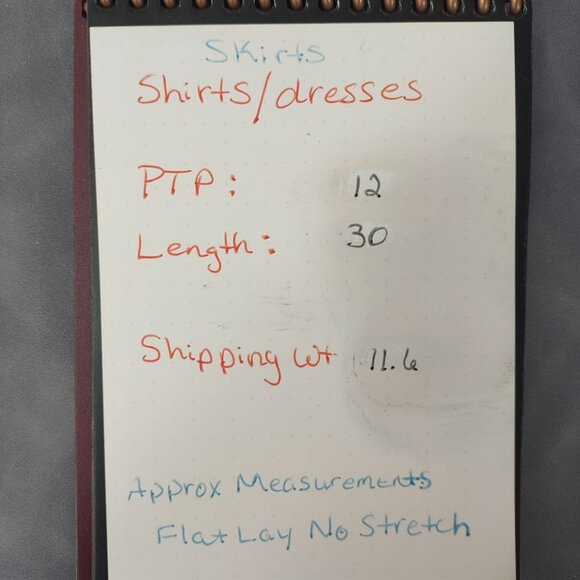 Skirts
Shirts/dresses
PTP: 12
Length: 30
Shipping Wt 11.6
Approx Measurements
Flat Lay No Stretch